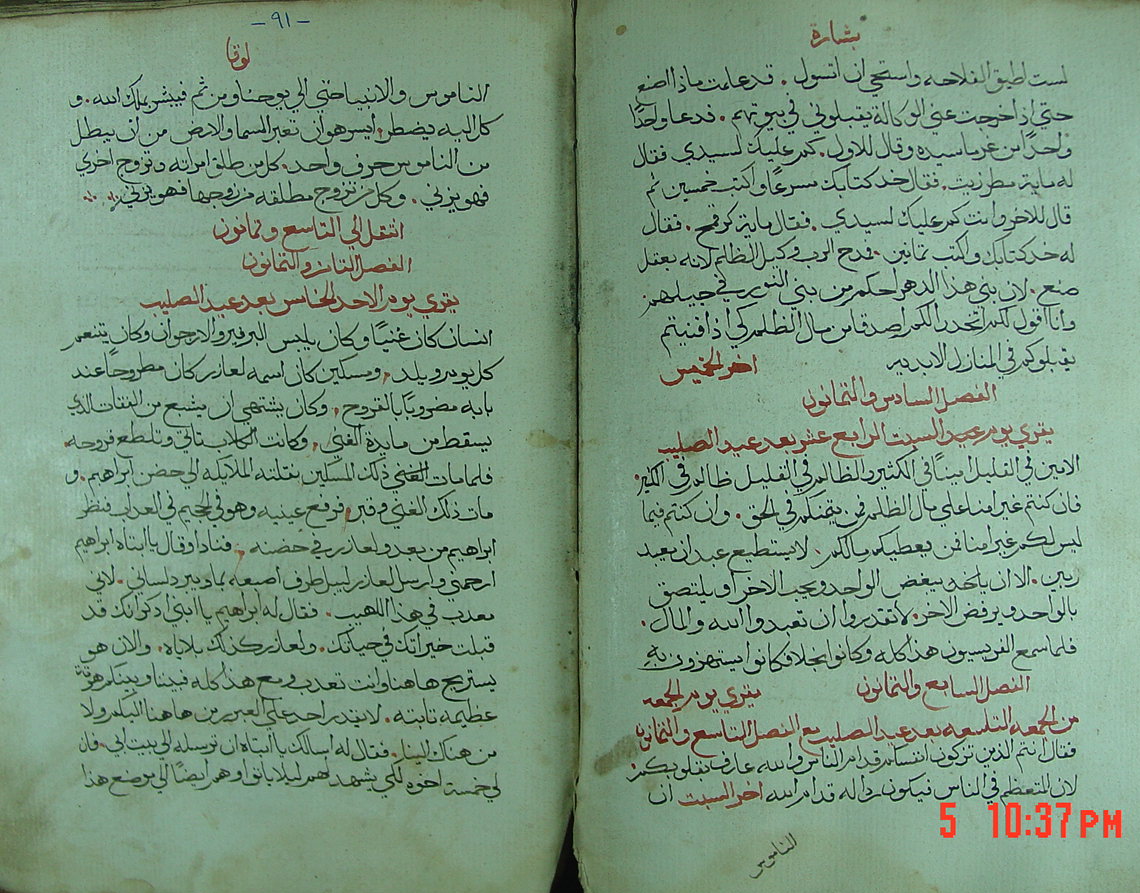 بشارة
لست اطيق الفلاحه واستحي ان اتسول . قد علمت ماذا اصنع
حتي اذا خرجت عني الوكالة يقبلوني في بيوتهم . فدعا واحدًا
واحدًا من غرما سيده وقال للاول . كم عليك لسيدي فقال
له ماية مطر زيت . فقال خد كتابك مسرعًا واكتب خمسين ثم
قال للاخر وانت كم عليك لسيدي . فقال ماية كر قمح . فقال
له خد كتابك واكتب تمانين . فمدح الرب وكيل الظلم لانه بعقل
صنع . لان بني هذا الدهر احكم من بني النور في جيلهم
وانا اقول لكم اتخدوا لكم اصدقا من مال الظلم كي اذا فنيتم
يقبلوكم في المنازل الابديه اخر الخميس
الفصل السادس والتمانون
يقري يوم عيد السبت الرابع عشر بعد عيد الصليب
الامين في القليل امينًا في الكثير والظالم في القليل ظالم في الكثير
فان كنتم غير امنا علي مال الظلم فمن يتمنكم في الحق . وان كنتم فيما
ليس لكم غير امنا فمن يعطيكم مالكم . لا يستطيع عبد ان يعبد
ربين . الا ان ياخد يبغض الواحد ويحب الاخر او يلتصق
بالواحد ويرفض الاخر . لا تقدروا ان تعبدوا الله والمال .
فلما سمع الفريسيون هذا كله وكانوا بخلا فكانوا يستهزون به
الفصل السابع والتمانون يقري يوم الجمعه
من الجمعه التاسعه بعد عيد الصليب مع الفصل التاسع والتمانون
فقال انتم الذين تزكون انفسكم قدام الناس والله عارف بقلوبكم .
لان المتعظم في الناس فيكون رداله قدام الله اخر السبت ان
الناموس
5 10:37 PM
- ٩١ -
لوقا
الناموس والانبيا حتي الي يوحنا ومن ثم فيبشر بملك الله . و
كل اليه يضطر . ايسر هو ان تعبر السما والارض من ان يبطل
من الناموس حرف واحد . كل من طلق امراته وتزوج اخري
فهو يزني . وكل من تزوج مطلقه من زوجها فهو يزني
انتقل الي التاسع وتمانون
الفصل التامن والتمانون
يقري يوم الاحد الخامس بعد عيد الصليب
انسان كان غنيًا وكان يلبس البرفير والارجوان وكان يتنعم
كل يوم ويلد . ومسكين كان اسمه لعازر كان مطروحًا عند
بابه مضروبًا بالقروح . وكان يشتهي ان يشبع من الفتات الدي
يسقط من مايدة الغني . وكانت الكلاب تاتي وتلطع قروحه
فلما مات ذلك المسكين نقلته الملايكه الي حضن ابراهيم . و
مات ذلك الغني وقبر . فرفع عينيه وهو في الجحيم في العداب فنظر
ابراهيم من بعد ولعازر في حضنه . فنادا وقال يا ابتاه ابراهيم
ارحمني وارسل لعازر ليبل طرف اصبعه بما ويبرد لساني . لاني
معدب في هذا اللهيب . فقال له ابراهيم يا ابني ادكر انك قد
قبلت خيراتك في حياتك . ولعازر كذلك بلاياه . والان هو
يستريح ها هنا وانت تعدب ومع هذا كله فبيننا وبينكم هوة
عظيمه تابته . لا يقدر احد علي العبور من ها هنا اليكم ولا
من هناك الينا . فقال له اسالك يا ابتاه ان ترسله الي بيت ابي . فان
لي خمسة اخوه لكي يشهد لهم ليلا ياتوا هم ايضًا الي موضع هذا